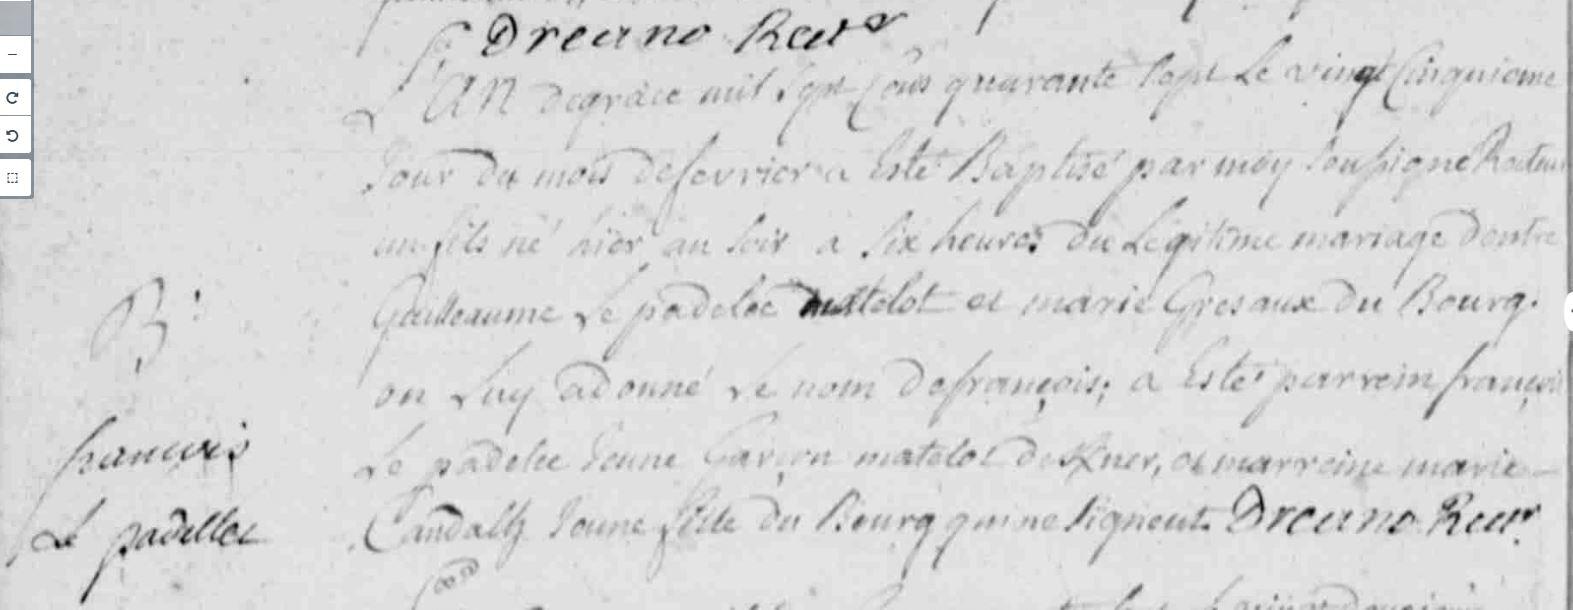 Dreano Rect^r
L'AN de grace mil Sept Cens quarante Sept Le vingt Cinquieme
Jour du mois de fevrier a Esté Baptisé par moy Soussigné Recteur
un fils né hier au soir a six heures du Legitime mariage d'entre
Guilleaume Le padelec matelot et marie Gresaux du Bourg.
B:
on Luy a donné Le nom de françois; a Esté parrein françois
francois
Le padelec Jeune Garçon matelot de et marreine marie
Le padellec
Candalh Jeune fille du Bourg qui ne Signent. Dreano Rect^r